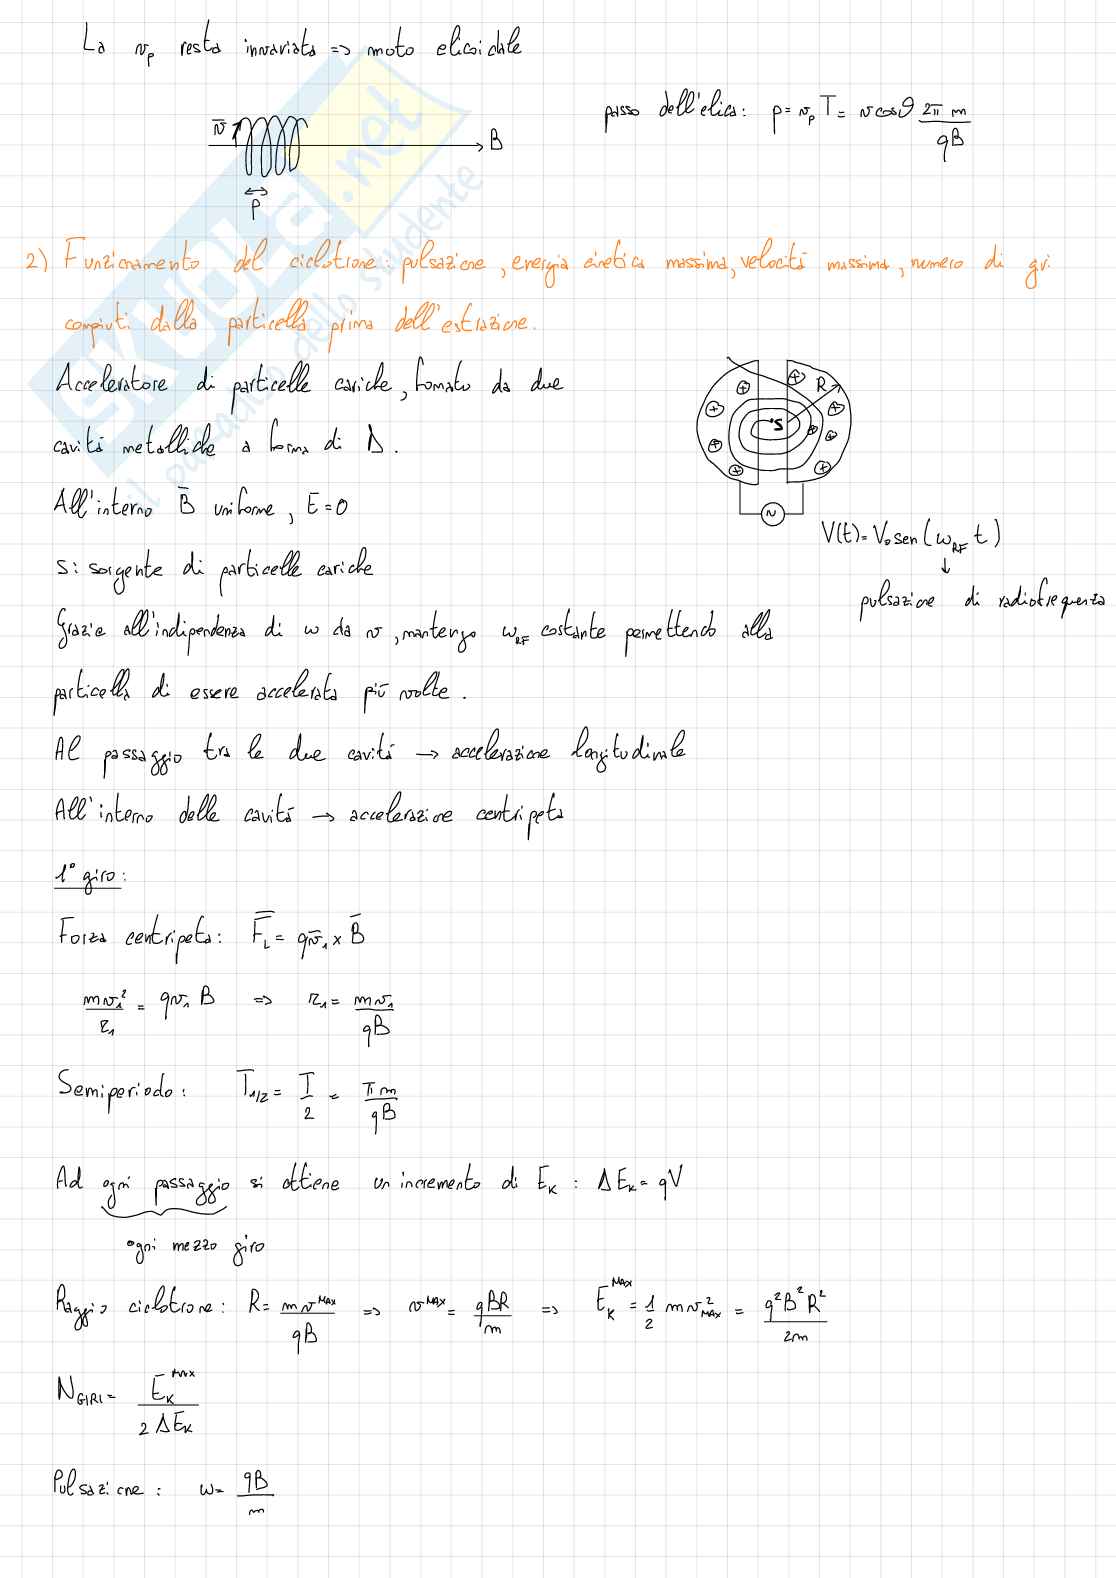 La v_p resta invariata => moto elicoidale
passo dell'elica: p = v_p T = v cosϑ 2π m / qB
v̄
B
p
2) Funzionamento del ciclotrone: pulsazione, energia cinetica massima, velocità massima, numero di gi
compiuti dalla particella prima dell'estrazione.
Acceleratore di particelle cariche, formato da due
cavità metalliche a forma di D.
R
S
All'interno B̄ uniforme, E = 0
V(t) = V₀ sen(ω_RF t)
↓
pulsazione di radiofrequenza
S: sorgente di particelle cariche
Grazie all'indipendenza di ω da v, mantengo ω_RF costante permettendo alla
particella di essere accelerata più volte.
Al passaggio tra le due cavità → accelerazione longitudinale
All'interno delle cavità → accelerazione centripeta
1° giro:
Forza centripeta: F̄_L = q v̄₁ x B̄
m v₁² / r₁ = q v₁ B => r₁ = m v₁ / qB
Semiperiodo: T_1/2 = T / 2 = π m / qB
Ad ogni passaggio si ottiene un incremento di E_K : ΔE_K = qV
ogni mezzo giro
Raggio ciclotrone: R = m v^MAX / qB => v^MAX = qBR / m => E_K^MAX = 1/2 m v²_MAX = q²B²R² / 2m
N_GIRI = E_K^MAX / 2 ΔE_K
Pulsazione: ω = qB / m
SKUOLA.net
il paradiso dello studente